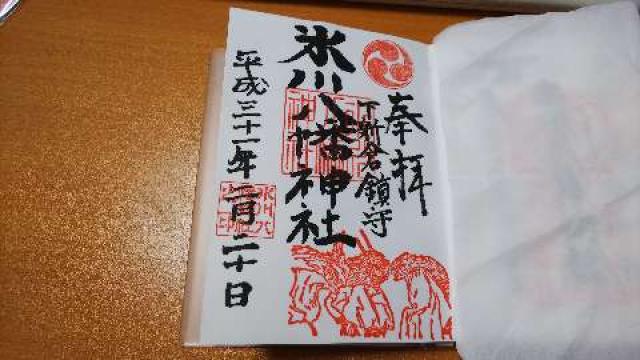 奉拝
下新倉鎮守
氷川八幡神社
平成三十一年二月二十日